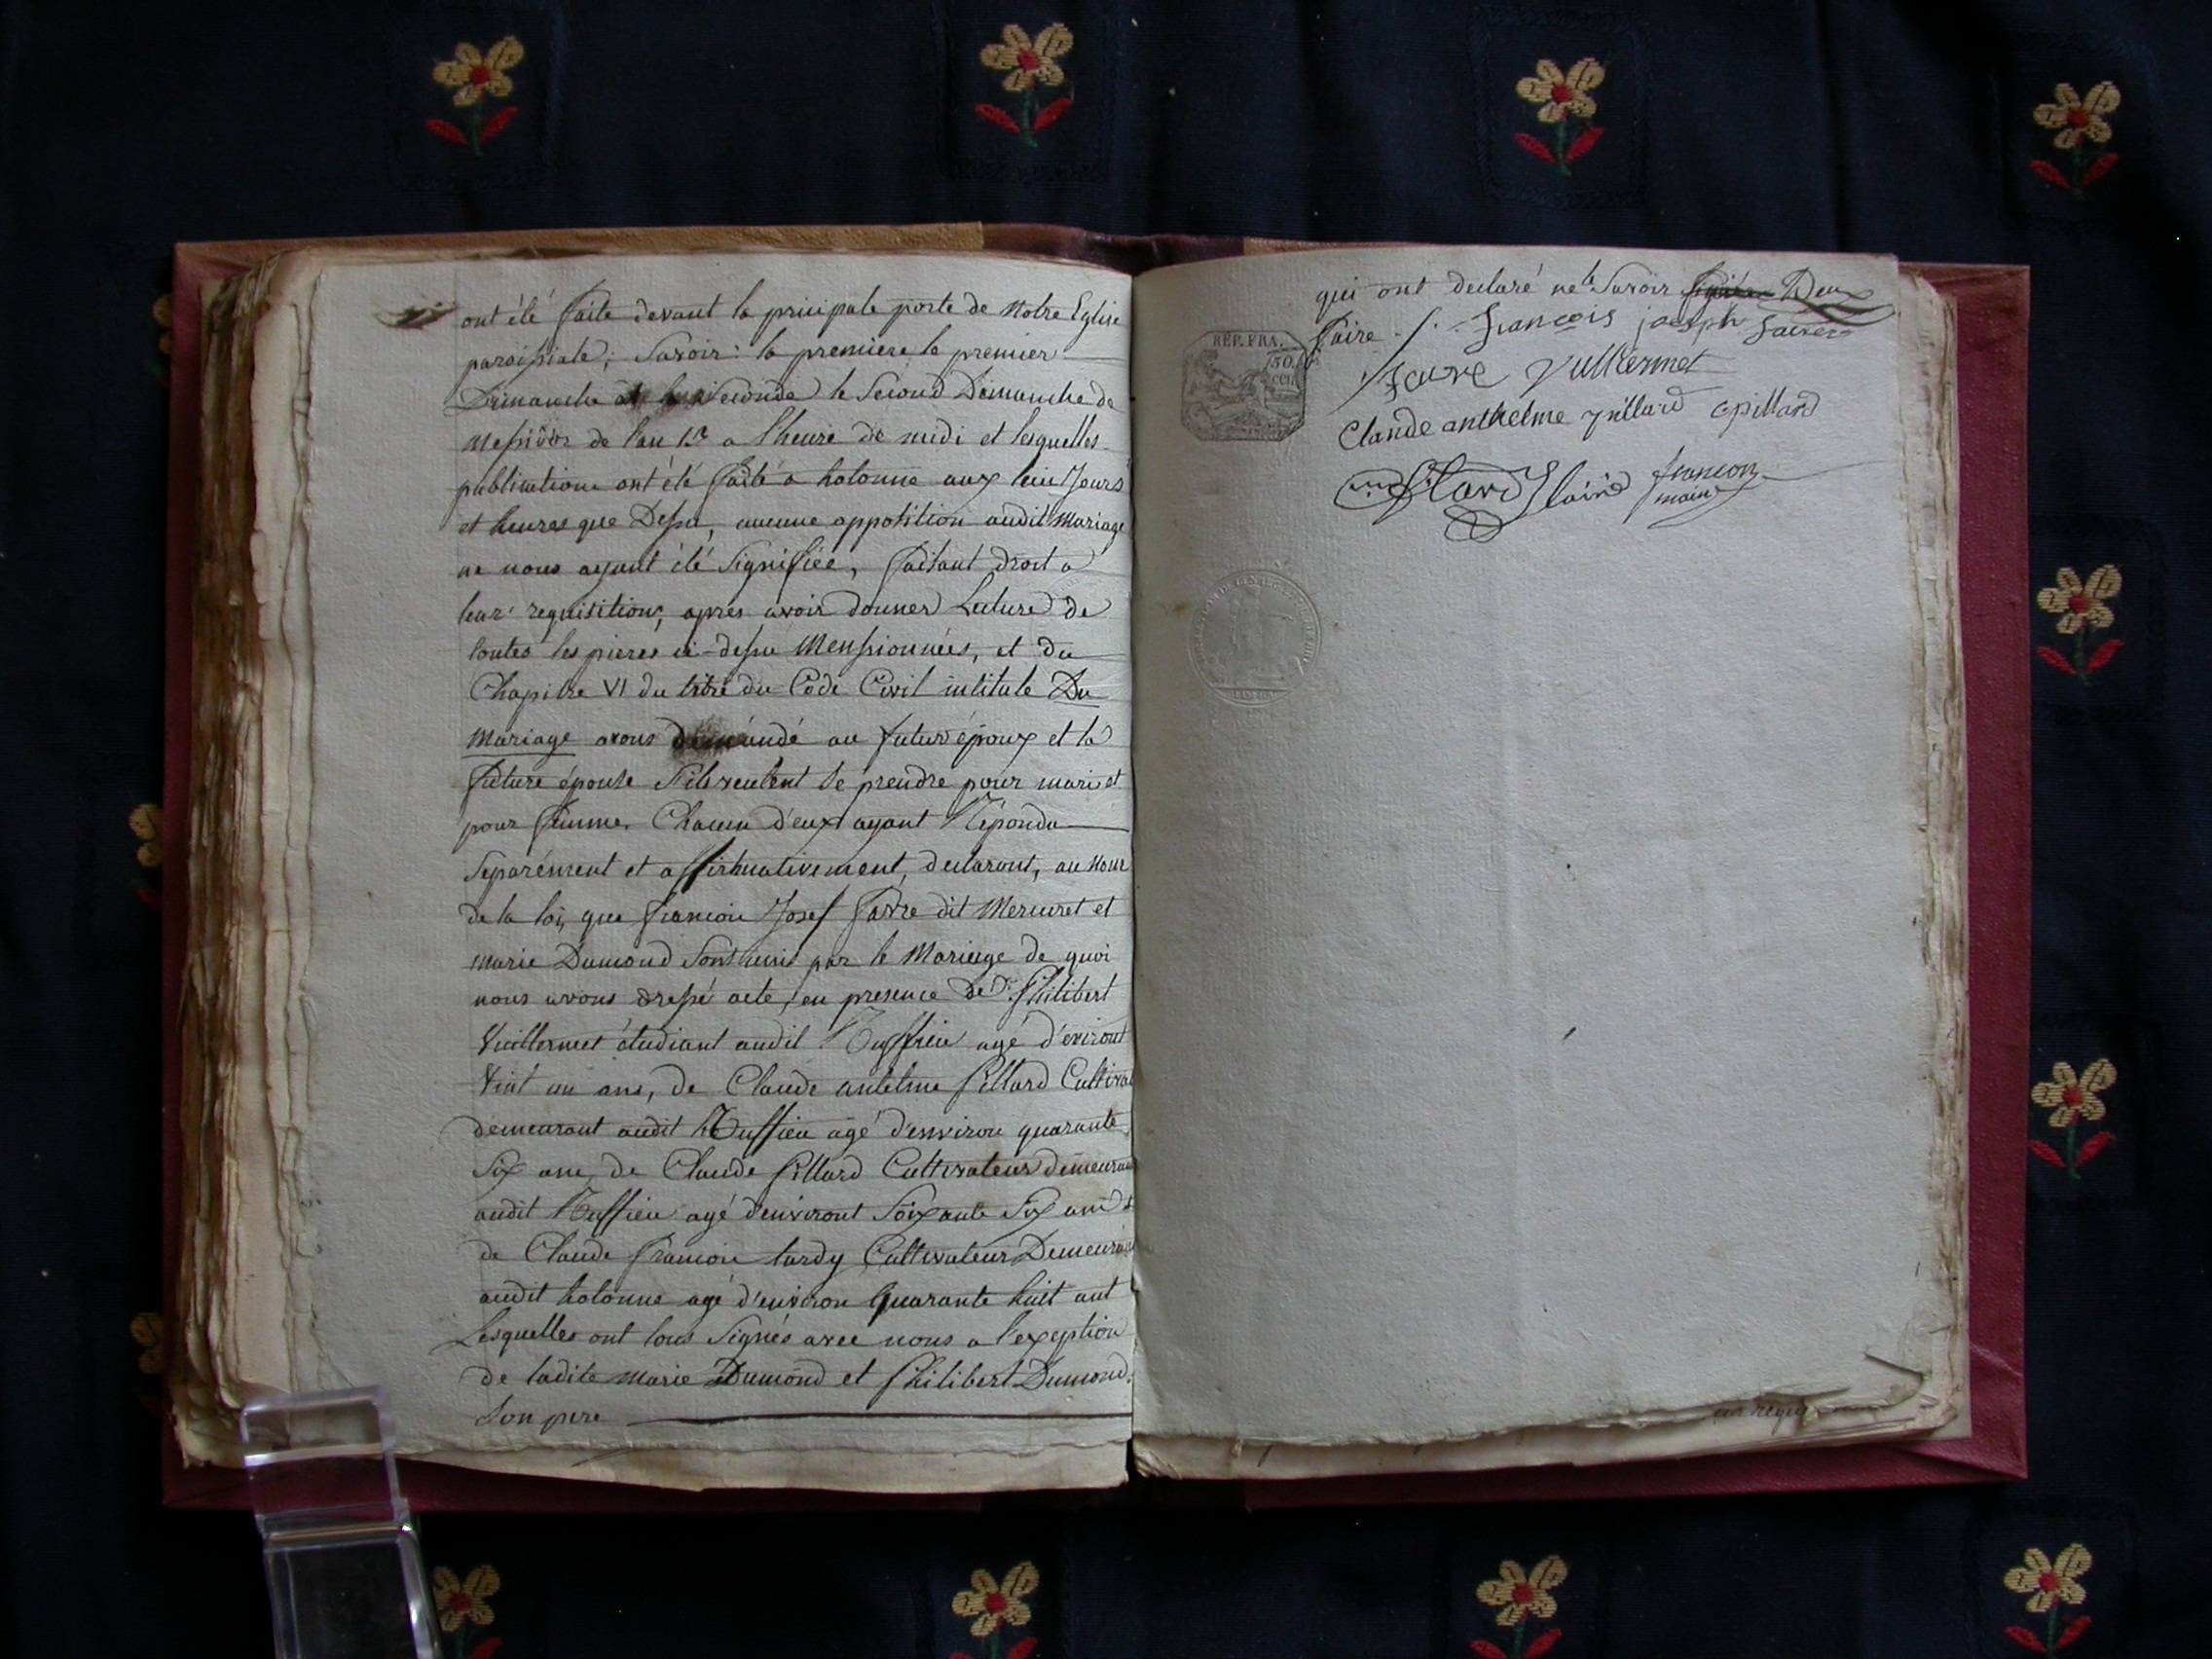 ont été faite devant la principale porte de Notre Eglise
paroissiale; Savoir: la premiere le premier
Dimanche et la Seconde le Second Dimanche de
Messidor de l'an 12 a lheure de midi et lesquelles
publications ont été faite a hotonne aux Jours
et heures que Dessu, aucune oppotition audit Mariage
ne nous ayant été Signifiée, faitant droit a
leur requisition, apres avoir donner Lecture de
toutes les pieces ci-dessu Menssionnées, et du
Chapitre VI du titre du Code Civil intitule Du
Mariage avons demandé au futur époux et la
future épouse S'ils veulent se prendre pour mari et
pour femme. Chacun d'eux ayant Répondu
Séparément et affirmativement, declaront, au nom
de la loi, que françoi Josef favre dit Mercuret et
marie Dumond Sont unis par le Mariage de quoi
nous avons dressé acte, en presence de Philibert
Vuillermet étudiant audit Ruffieu agé d'eviront
vint un ans, de Claude antelme Pillard Cultivat
demeurant audit Ruffieu agé d'environ quarante
Six ans, de Claude Pillard Cultivateur demeurant
audit Ruffieu agé d'environt Soixante Six ans
de Claude françoi tardy Cultivateur Demeurant
audit hotonne agé d'environ Quarante huit ant
Lesquelles ont tous Signés avec nous a l'exeption
de ladite marie Dumond et Philibert Dumond
Son pere
qui ont declaré ne le Savoir Deux
faire. françois joseph faivre
REP. FRA.
50.
CEN
favre Vulliermet
Claude anthelme pillard C pillard
françon
maire